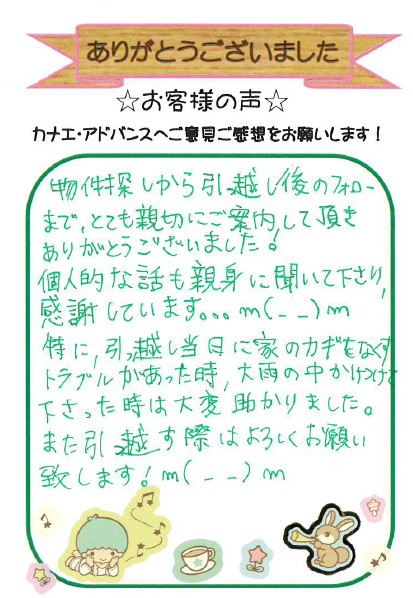 ありがとうございました
☆お客様の声☆
カナエ・アドバンスへご意見ご感想をお願いします！
物件探しから引っ越し後のフォロー
まで、とても親切にご案内して頂き
ありがとうございました！
個人的な話も親身に聞いて下さり、
感謝しています。。。m(_ _)m
特に、引っ越し当日に家のカギをなくす
トラブルがあった時、大雨の中かけつけて
下さった時は大変助かりました。
また引っ越す際はよろしくお願い
致します！m(_ _)m